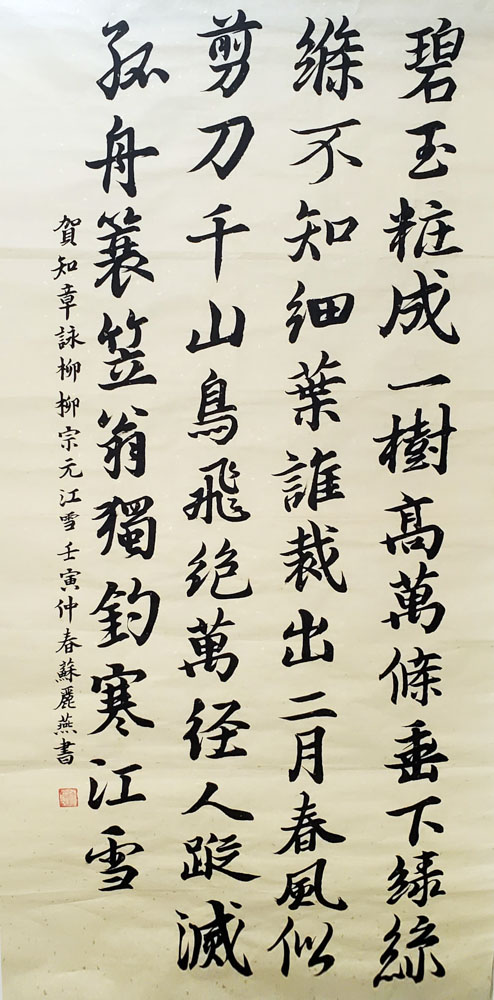 碧玉粧成一樹高萬條垂下綠絲
絛不知細葉誰裁出二月春風似
剪刀千山鳥飛絕萬径人蹤滅
孤舟蓑笠翁獨釣寒江雪
賀知章詠柳柳宗元江雪壬寅仲春蘇麗燕書